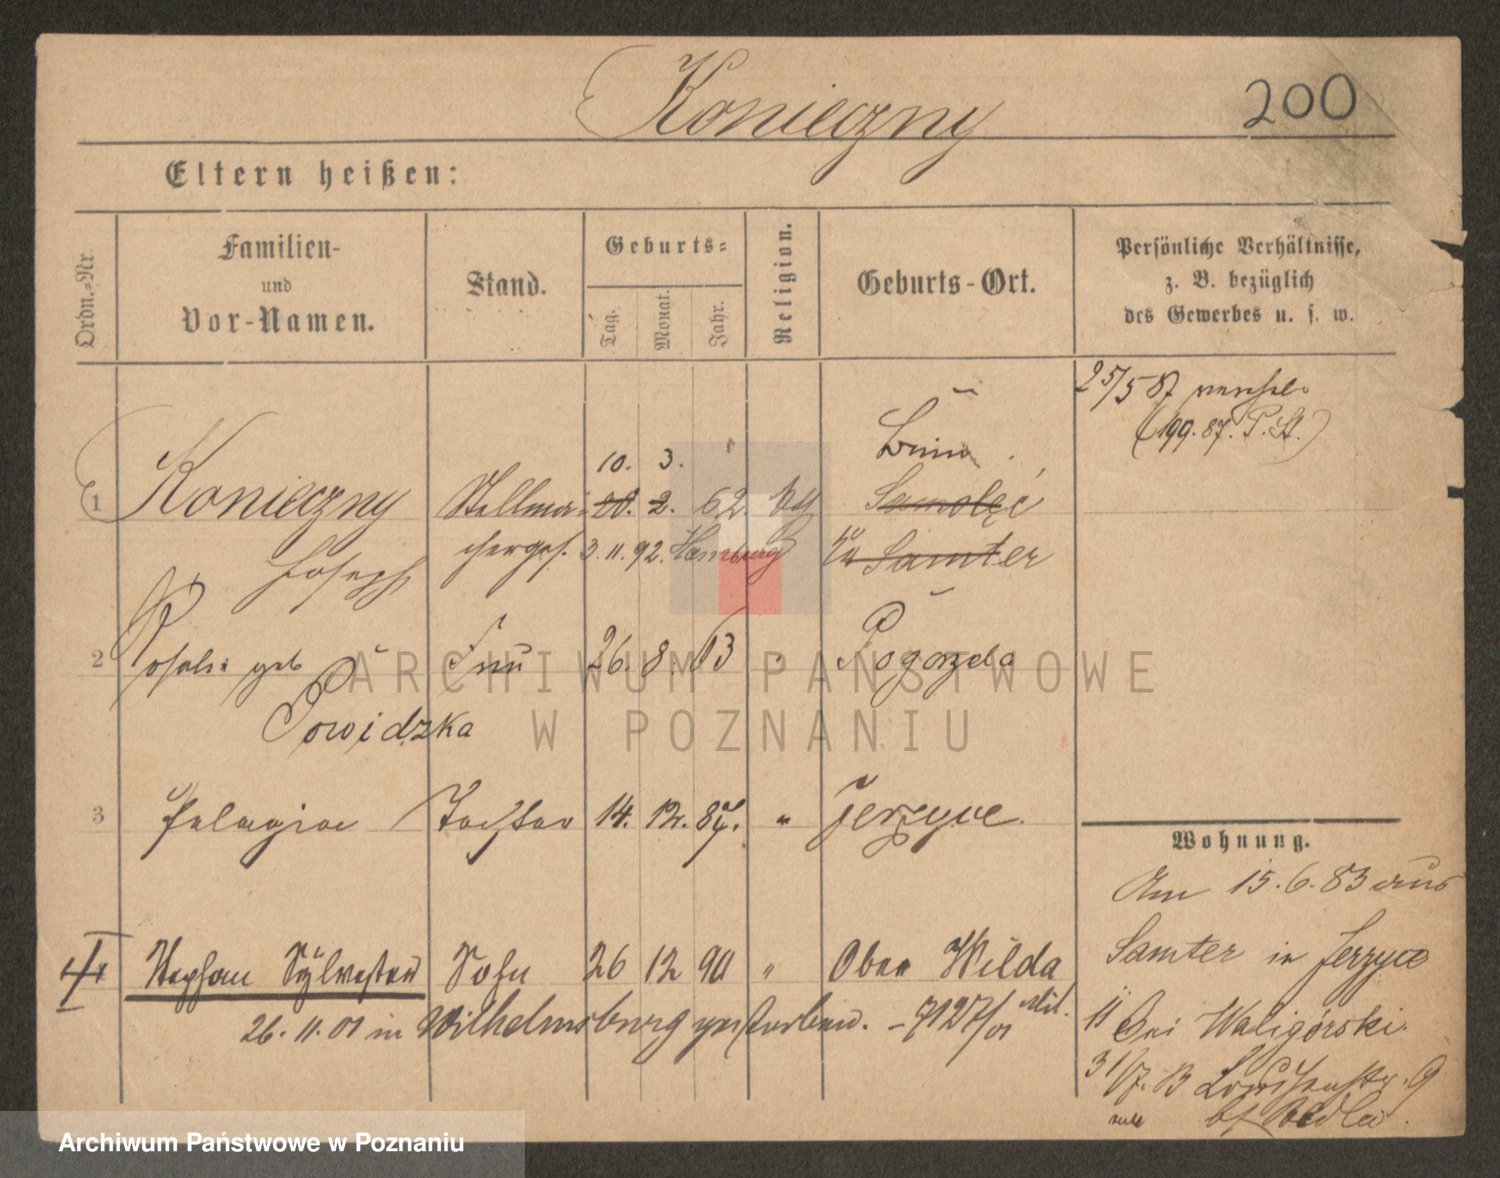 Konieczny 200
Eltern heißen:
Ordn.-Nr.
Familien-
und
Vor-Namen.
Stand.
Geburts-
Tag. Monat. Jahr.
Religion.
Geburts-Ort.
Persönliche Verhältnisse,
z. B. bezüglich
des Gewerbes u. s. w.
25/5 87
(199. 87. P. St.)
10. 3.
1 Konieczny Stellma- 20. 2. 62. Samolęc
Joseph chergес. 3. 11. 92. Hamburg Samter
2 Rosalie geb Frau 26. 8. 63 Pogorzela
Powidzka
3 Pelagia Tochter 14. 12. 87. " Jerzyce.
4 Stephan Sylvester Sohn 26 12 90 " Ober Wilda
26. 11. 01 in Wilhelmsburg gestorben. - 7127/01 Mil.
Wohnung.
Am 15. 6. 83 aus
Samter in Jerzyce
11 bei Waligórski.
31/7. 9
ARCHIWUM PAŃSTWOWE
W POZNANIU
Archiwum Państwowe w Poznaniu